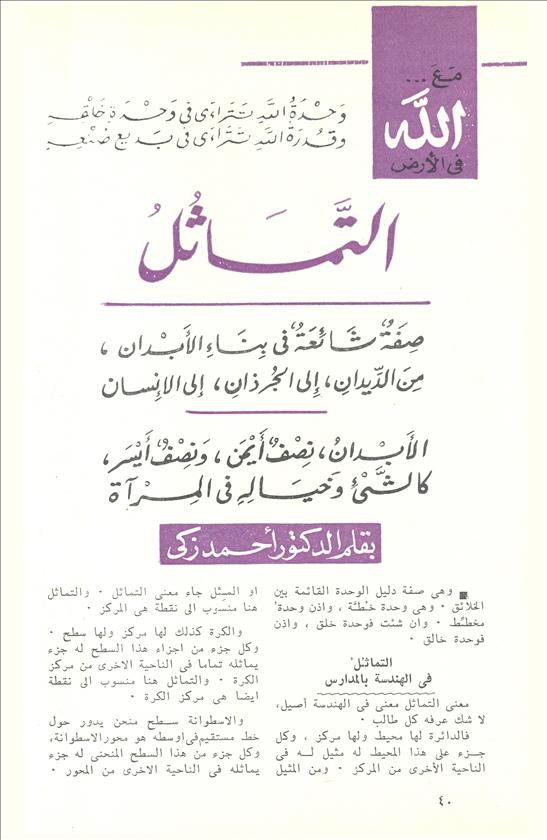 مَعَ ...
الله
فى الأرض
وَحْدَةُ اللهِ تَتَرَاءَى فى وَحْدَةِ خَلْقِهِ
وقُدرَةُ اللهِ تَتَرَاءَى فى بَديعِ صُنْعِهِ
التَّمَاثُلُ
صِفَةٌ شَائِعَةٌ فى بِنَاءِ الأَبْدانِ ،
مِنَ الدِّيدانِ ، إلى الجُرذانِ ، إلى الإنسان
الأَبْدانُ ، نِصْفٌ أَيْمَن ، وَنِصْفٌ أَيْسَر ،
كالشَّىْءِ وَخَيَالِهِ فى المِرآة
بقلم الدكتور أحمد زكى
■ وهى صفة دليل الوحدة القائمة بين
الخلائق . وهى وحدة خُطّة ، واذن وحدة
مخطِّط . وان شئت فوحدة خلق ، واذن
فوحدة خالق .
التماثلُ
فى الهندسة بالمدارس
معنى التماثل معنى فى الهندسة أصيل،
لا شك عرفه كل طالب .
فالدائرة لها محيط ولها مركز ، وكل
جزء على هذا المحيط له مثيل لـه فى
الناحية الأخرى من المركز . ومن المثيل
او المِثل جاء معنى التماثل . والتماثل
هنا منسوب الى نقطة هى المركز .
والكرة كذلك لها مركز ولها سطح .
وكل جزء من اجزاء هذا السطح له جزء
يماثله تماما فى الناحية الاخرى من مركز
الكرة . والتماثل هنا منسوب الى نقطة
ايضا هى مركز الكرة .
والاسطوانة سطح منحن يدور حول
خط مستقيم فى اوسطه هو محور الاسطوانة،
وكل جزء من هذا السطح المنحنى له جزء
يماثله فى الناحية الاخرى من المحور .
٤٠